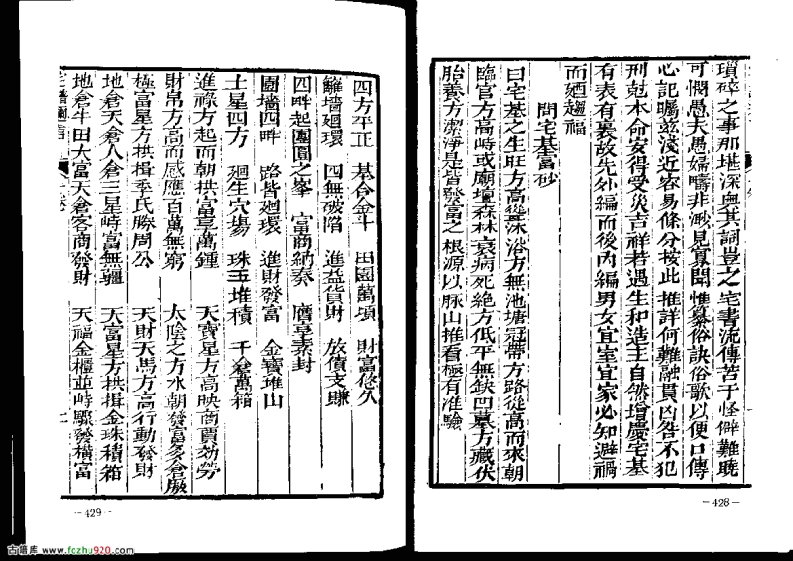 瑣碎之事那堪深奧其詞豈之宅書流傳苦于怪僻難曉
可憫愚夫愚婦疇非渺見寡聞惟纂俗訣俗歌以便口傳
心記囑茲淺近容易條分按此推詳何難融貫凶咎不犯
刑尅本命安得受災吉祥若遇生和造主自然增慶宅基
有表有裏故先外編而後內編男女宜室宜家必知避禍
而廼趨福
問宅基富砂
曰宅基之生旺方高從沐浴方無池塘冠帶方路從高而來朝
臨官方高峙或廟壇森林衰病死絶方低平無缺凹墓方藏伏
胎養方潔淨是皆發富之根源以脉山推看極有准驗
—428—
四方平正 基合金斗 田園萬頃 財富悠久
籬墻廻環 四無破陷 進益貨財 放債支賺
四畔起團圓之峯 富商納奏 膺享素封
圍墻四畔 路皆廻環 進財發富 金寶堆山
土星四方 廻生穴塲 珠玉堆積 千倉萬箱
進祿方起而朝拱富享萬鍾 天寶星方高映商賈効勞
財帛方高而感應百萬無窮 太陰之方水朝發富多倉廒
極富星方拱揖季氏勝周公 天財天馬方高行動發財
地倉天倉人倉三星峙富無疆 天富星方拱揖金珠積箱
地倉牛田大富天倉客商發財 天福金櫃並峙驟發橫富
—429—
古籍库 www.fczhu920.com